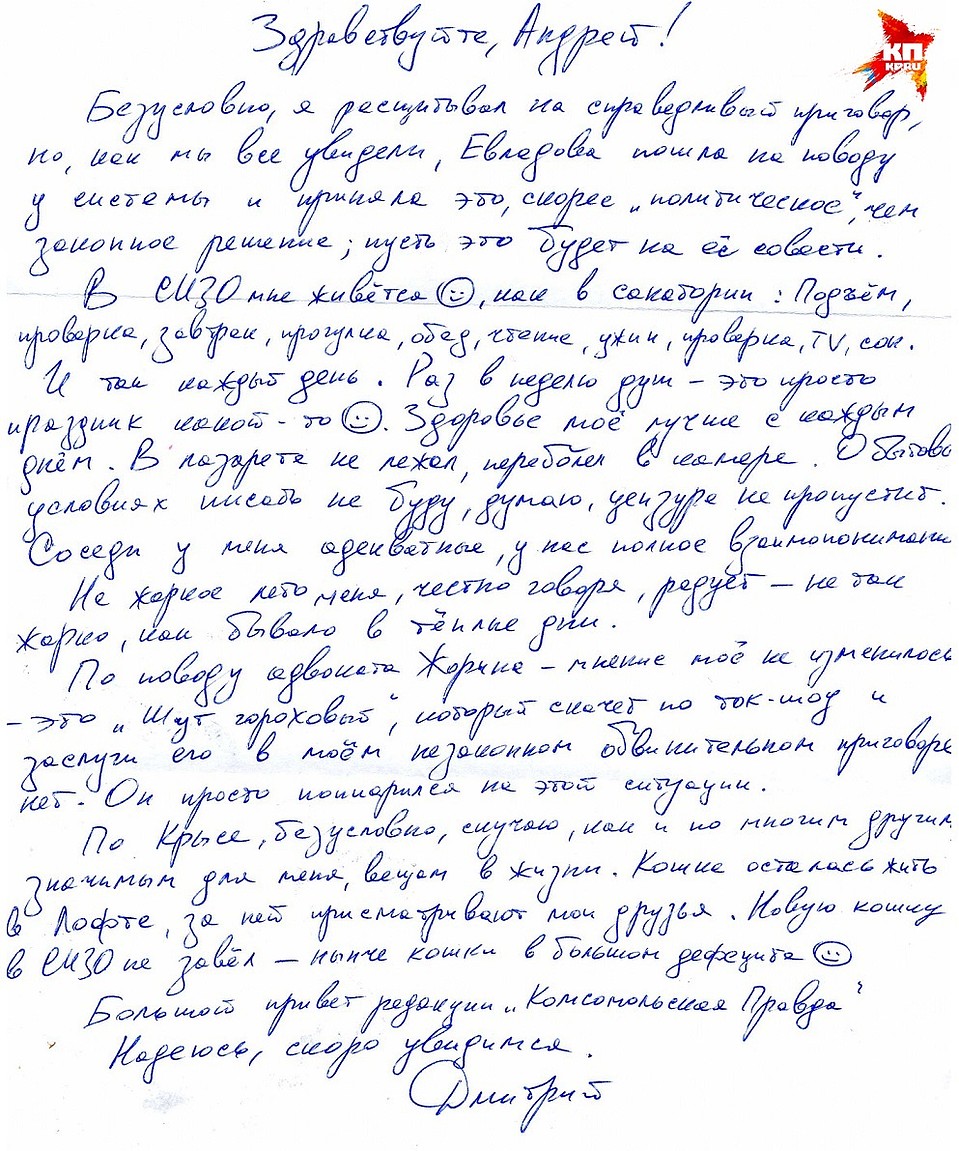 Здравствуйте, Андрей!
КП
KP.RU
Безусловно, я расщитывал на справедливый приговор,
но, как мы все увидели, Евладова пошла на поводу
у системы и приняла это, скорее „политическое“, чем
законное решение; пусть это будет на её совести.
В СИЗО мне живётся ☺, как в санатории: Подъём,
проверка, завтрак, прогулка, обед, чтение, ужин, проверка, TV, сон.
И так каждый день. Раз в неделю душ – это просто
праздник какой-то ☺. Здоровье моё лучше с каждым
днём. В лазарете не лежал, переболел в камере. О бытовы
условиях писать не буду, думаю, цензура не пропустит.
Соседи у меня адекватные, у нас полное взаимопонимани
Не жаркое лето меня, честно говоря, радует – не так
жарко, как бывало в тёплые дни.
По поводу адвоката Жорина – мнение моё не изменилось
– это „Шут гороховый“, который скачет по ток-шоу и
заслуги его в моём незаконном обвинительном приговоре
нет. Он просто попиарился на этой ситуации.
По Крысе, безусловно, скучаю, как и по многим другим
значимым для меня, вещам в жизни. Кошка осталась жить
в Лофте, за ней присматривают мои друзья. Новую кошку
в СИЗО не завёл – нынче кошки в большом дефеците ☺
Большой привет редакции „Комсомольская Правда“
Надеюсь, скоро увидимся.
Дмитрий